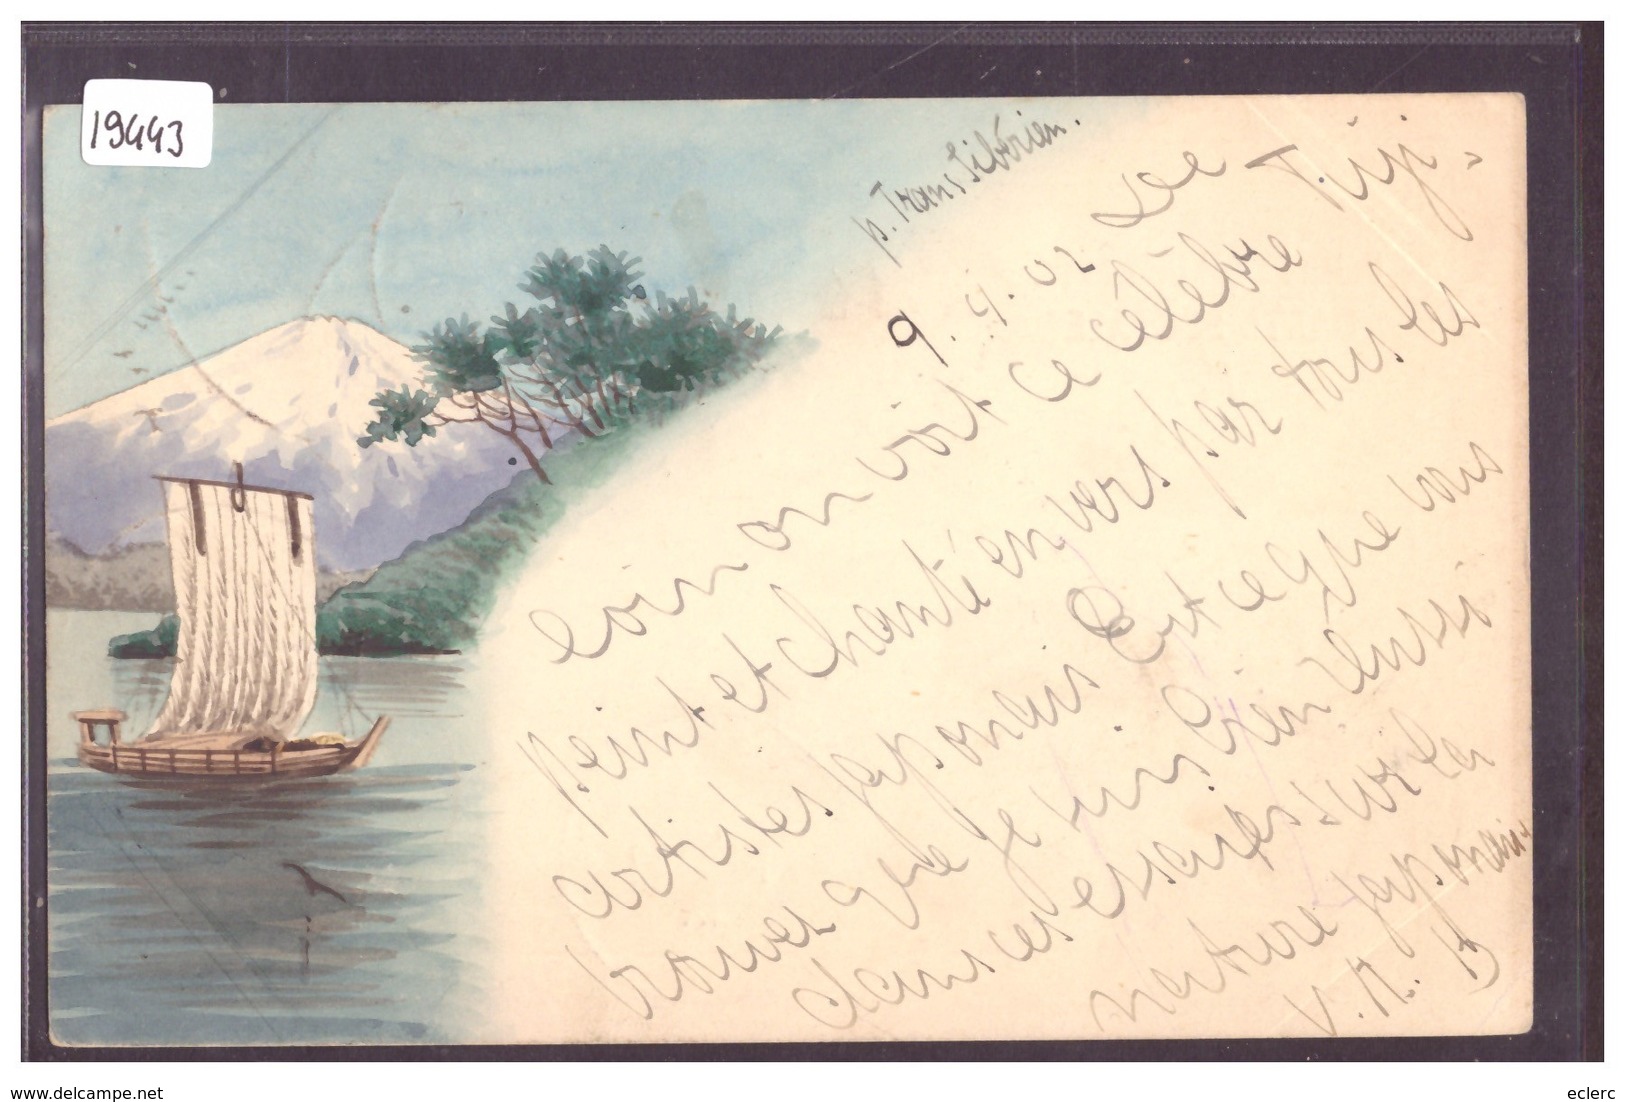 19443
p. Trans Sibérien.
9. 9. 02 De
loin on voit ce célèbre Fuji-
peint et chanté en vers par tous les
artistes japonais Est ce que vous
trouvez que je suis bien réussi
dans ces essais sur la
nature japonais
V. N. B
www.delcampe.net
eclerc